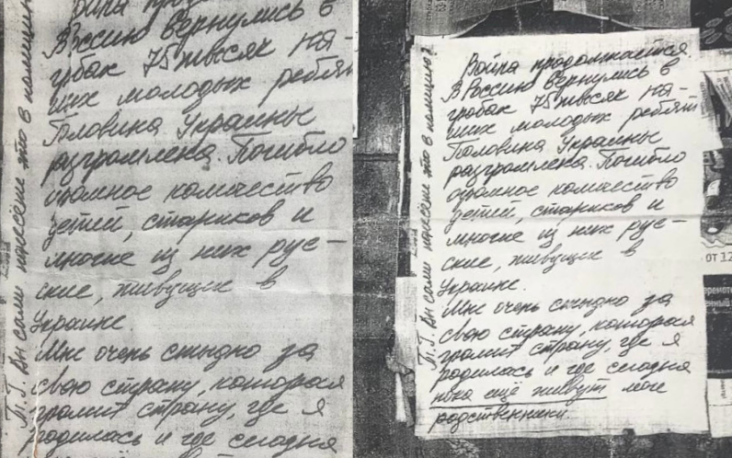 Война
В Россию вернулись в
гробах 75 тысяч на-
ших молодых ребят
Половина Украины
разгромлена. Погибло
огромное количество
детей, стариков и
многие из них рус-
ские, живущие в
Украине.
Мне очень стыдно за
свою страну, которая
громит страну, где я
родилась и где сегодня
Вы сами это в полицию?
Война продолжается.
В Россию вернулись в
гробах 75 тысяч на-
ших молодых ребят
Половина Украины
разгромлена. Погибло
огромное количество
детей, стариков и
многие из них рус-
ские, живущие в
Украине.
Мне очень стыдно за
свою страну, которая
громит страну, где я
родилась и где сегодня
пока ещё живут мои
родственники.
Вы сами это в полицию?
ОТ 12